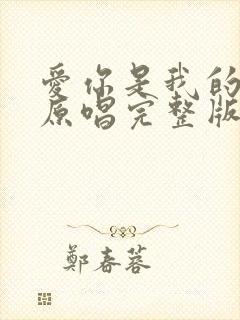 愛你是我的
原唱完整版
鄭春蓉